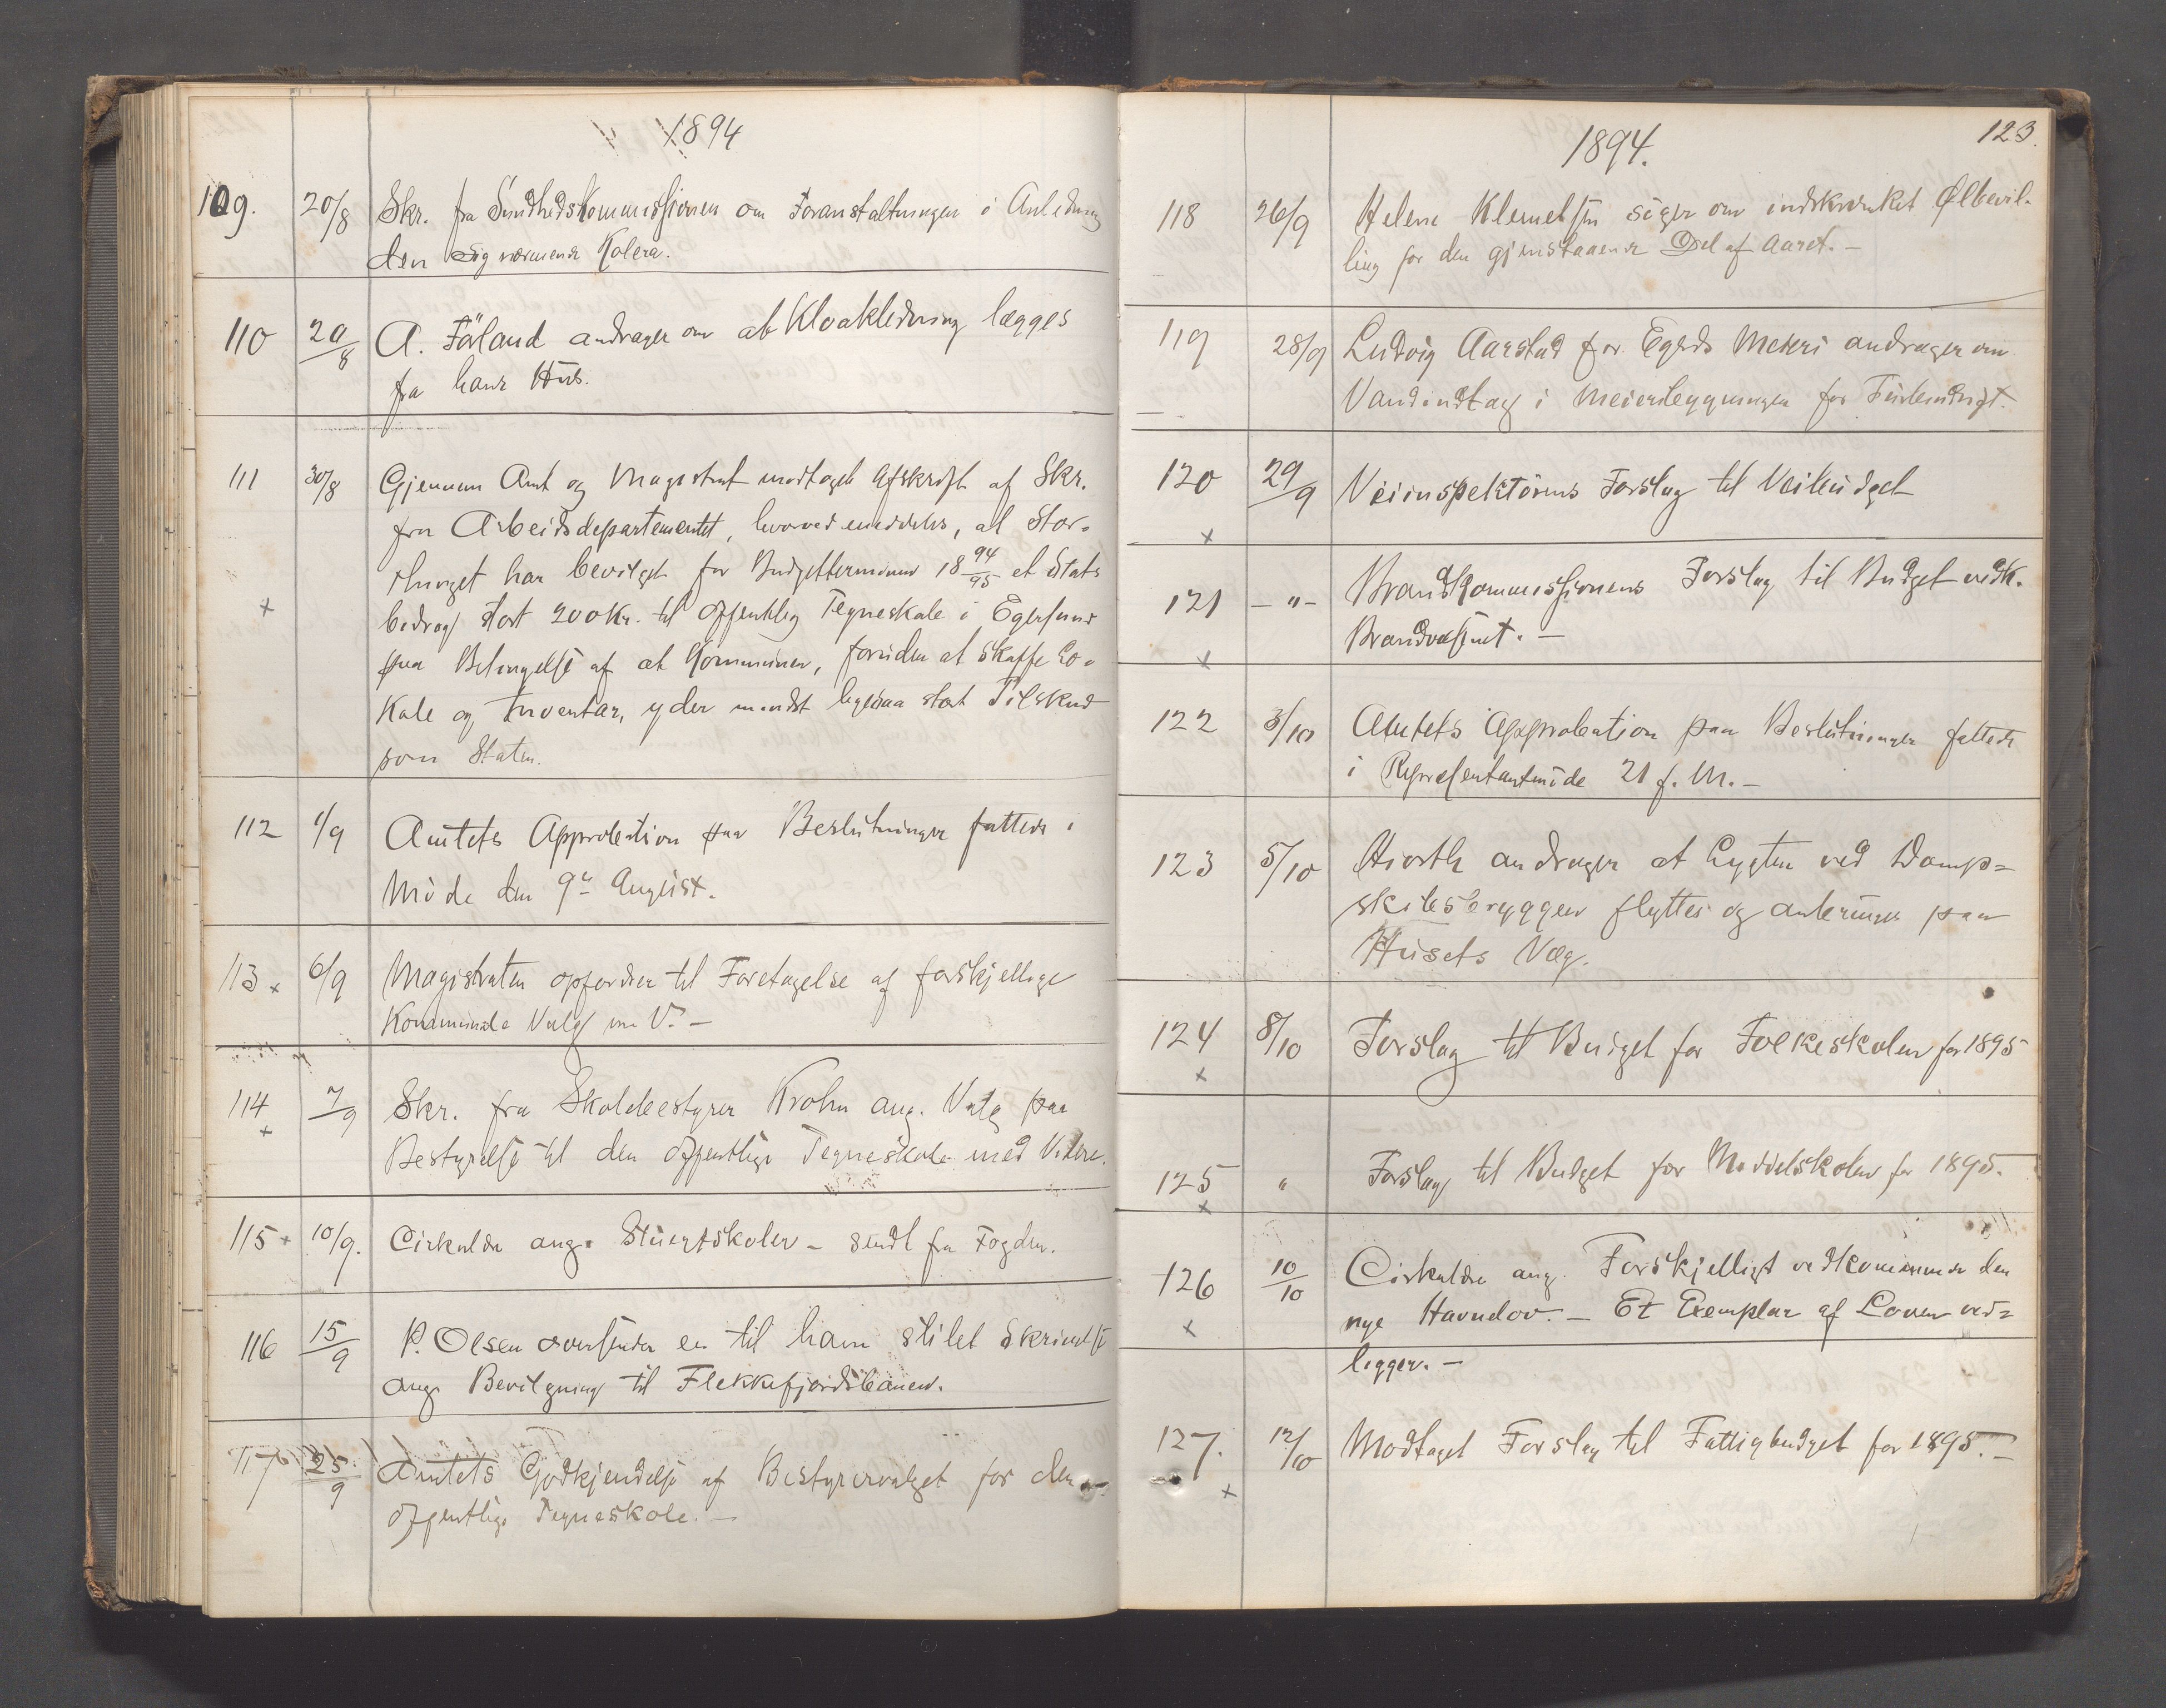 1894
109. 20/8 Skr. fra Sundhedskommissionen om Foranstaltninger i Anledning
den sig nærmende Kolera.
110 20/8 A. Föland andrager om at Kloakledning lægges
fra hans Hus.
111 30/8 Gjennem Amt og Magistrat modtaget Afskrift af Skr.
fra Arbeidsdepartementet, hvorved meddeles, at Stor-
thinget har bevilget for Budgetterminen 18 94/95 et Stats
bidrag stort 200 Kr. til offentlig Tegneskole i Egersund
x
paa Betingelse af at Kommunen, foruden at skaffe Lo-
kale og Inventar, yder mindst ligesaa stort Tilskud
som Staten.
112 1/9 Amtets Approbation paa Beslutninger fattede i
Möde den 9de August.
113 x 6/9 Magistraten opfordrer til Foretagelse af forskjellige
Kommunale Valg m. V. —
114 7/9 Skr. fra Skolebestyrer Krohn ang. Valg paa
x Bestyrelse til den offentlige Tegneskole med Videre.
115 + 10/9. Cirkulære ang. - sendt fra Fogden.
116 15/9 P. Olsen oversender en til ham stilet Skrivelse
ang. Bevilgning til Flekkefjordsbanen.
117 25/9 Amtets Godkjendelse af Bestyrervalget for den
offentlige Tegneskole. —
123.
1894.
118 26/9 Helene Klemetsen söger om indskrænket Ølbevil-
ling for den gjenstaaende Del af Aaret. —
119 28/9 Ludvig Aarstad for Egrds Meieri andrager om
Vandindtag i Meieribygningen for
120 29/9 Veiinspektörens Forslag til Veibudget
x
121 — " — Brandkommissionens Forslag til Budget vedk.
Brandvæsenet. —
x
122 3/10 Amtets Approbation paa Beslutninger fattede
i Repræsentantmöde 21 f. M. —
123 5/10 Hiorth andrager at Lygten ved Damp=
skibsbryggen flyttes og anbringes paa
Husets Væg.
124 8/10 Forslag til Budget for Folkeskolen for 1895
x
125 " Forslag til Budget for Middelskolen for 1895.
x
126 10/10 Cirkulære ang. Forskjelligt vedkommende den
nye Havnelov. — Et Exemplar af Loven ved=
x
ligger. —
127. 12/10 Modtaget Forslag til Fattigbudget for 1895. —
x